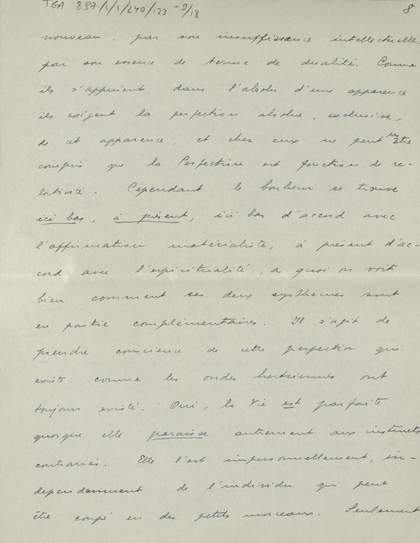 TGA 897/1/1/240/123 -9/18
8
nouveau, par son insuffisance intellectuelle
par son essence de terme de dualité. Comme
ils s'appuient dans l'absolu d'une apparence
ils exigent la perfection absolue, exclusive,
de cet apparence, et chez eux ne peut être
compris que la Perfection est fonction de re-
lativité. Cependant le bonheur se trouve
ici bas, à présent, ici bas d'accord avec
l'affirmation matérialiste, à présent d'ac-
cord avec l'espiritualité, à quoi on voit
bien comment ces deux systhèmes sont
en partie complémentaires. Il s'agit de
prendre conscience de cette perfection qui
existe comme les ondes hertziennes ont
toujours existé. Oui, la Vie est parfaite
quoique elle paraisse autrement aux instincts
contrariés. Elle l'est impersonnellement, in-
dependamment de l'individu qui peut
être coupé en des petits morceaux. Seulement